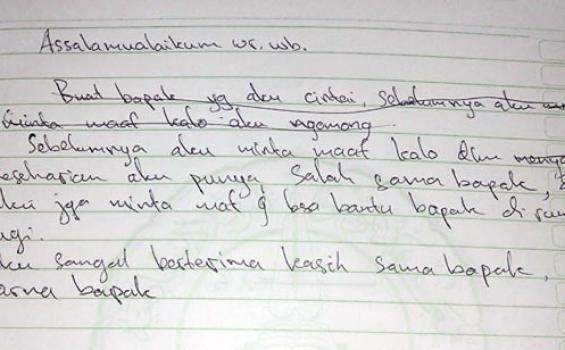 Assalamualaikum wr. wb.
Buat bapak yg aku cintai, sebelumnya aku
minta maaf kalo aku ngomong
Sebelumnya aku minta maaf kalo dlm
keseharian aku punya salah sama bapak,
aku jga minta maf g bsa bantu bapak di
aku sangat berterima kasih sama bapak,
karna bapak